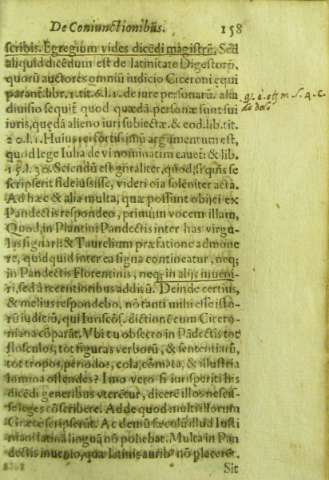 De Coniunctionibus. 158
scribis. Egregium vides dicēdi magistrū. Sed
aliquid dicēdum est de latinitate Digestorū,
quorū auctores omniū iudicio Ciceroni equi
parant. lib. 1. tit. 6. l. 1. de iure personarū. alia
diuisio sequit quod quædā personæ sunt sui
iuris, quędā alieno iuri subiectæ. & eod. lib. tit.
argumentum est,
quod lege Iulia de vi nominatim cauet: & lib.
Sciendū est
scripserit fideiussisse, videri oīa solēniter acta.
Ad hæc & alia multa, quæ possunt obijci ex
Pandectis respondeo, primùm vocem illam,
Quod, in Plantini Pandectis inter has virgu-
las signari: & Taurelium præfatione admone
re, quidquid inter ea signa contineatur, neq;
in Pandectis Florentinis, neq; in alijs inueni-
ri, sed à recentioribus additū. Deinde certius,
& melius respondebo, nō tanti mihi esse
rū iudiciū, qui Iuriscōs. dictionē cum Cicero-
niana cōparāt. Vbi tu obsecro in Pādectis tot
flosculos, tot figuras verborū, & sententiarū,
tot tropos, periodos, cola, cōmata, & illustria
lumina ostendes? Imo vero si iurisperiti his
dicēdi generibus vterētur, dicerē illos
leges cōscribere. Adde quod multi illorum
Græcè scripserāt. Ac demū sæculū illud Iusti
niani linguā nō poliebat. Multa in Pan
dectis inuenio, quæ latinis aurib° nō placerēt.
Sit